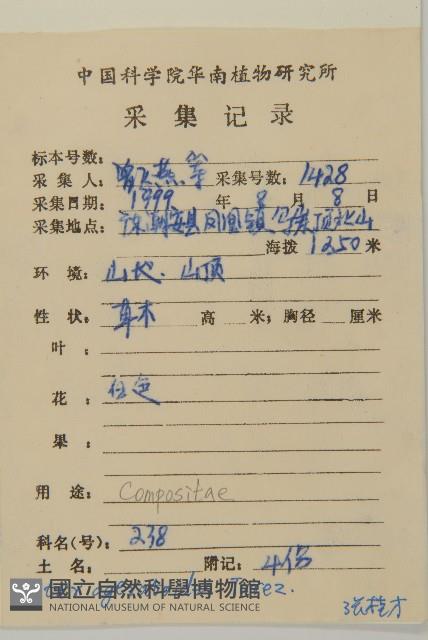 中国科学院华南植物研究所
采集记录
标本号数：
采集人：曾飞燕等 采集号数：1428
采集日期：1999 年 8 月 8 日
采集地点：潮安县凤凰镇 顶
海拔 1250 米
环境：山地、山顶
性状：草本 高 米；胸径 厘米
叶：
花：
果：
用途：Compositae
科名(号)：238
土名： 附记：4份
國立自然科學博物館
NATIONAL MUSEUM OF NATURAL SCIENCE
张桂才